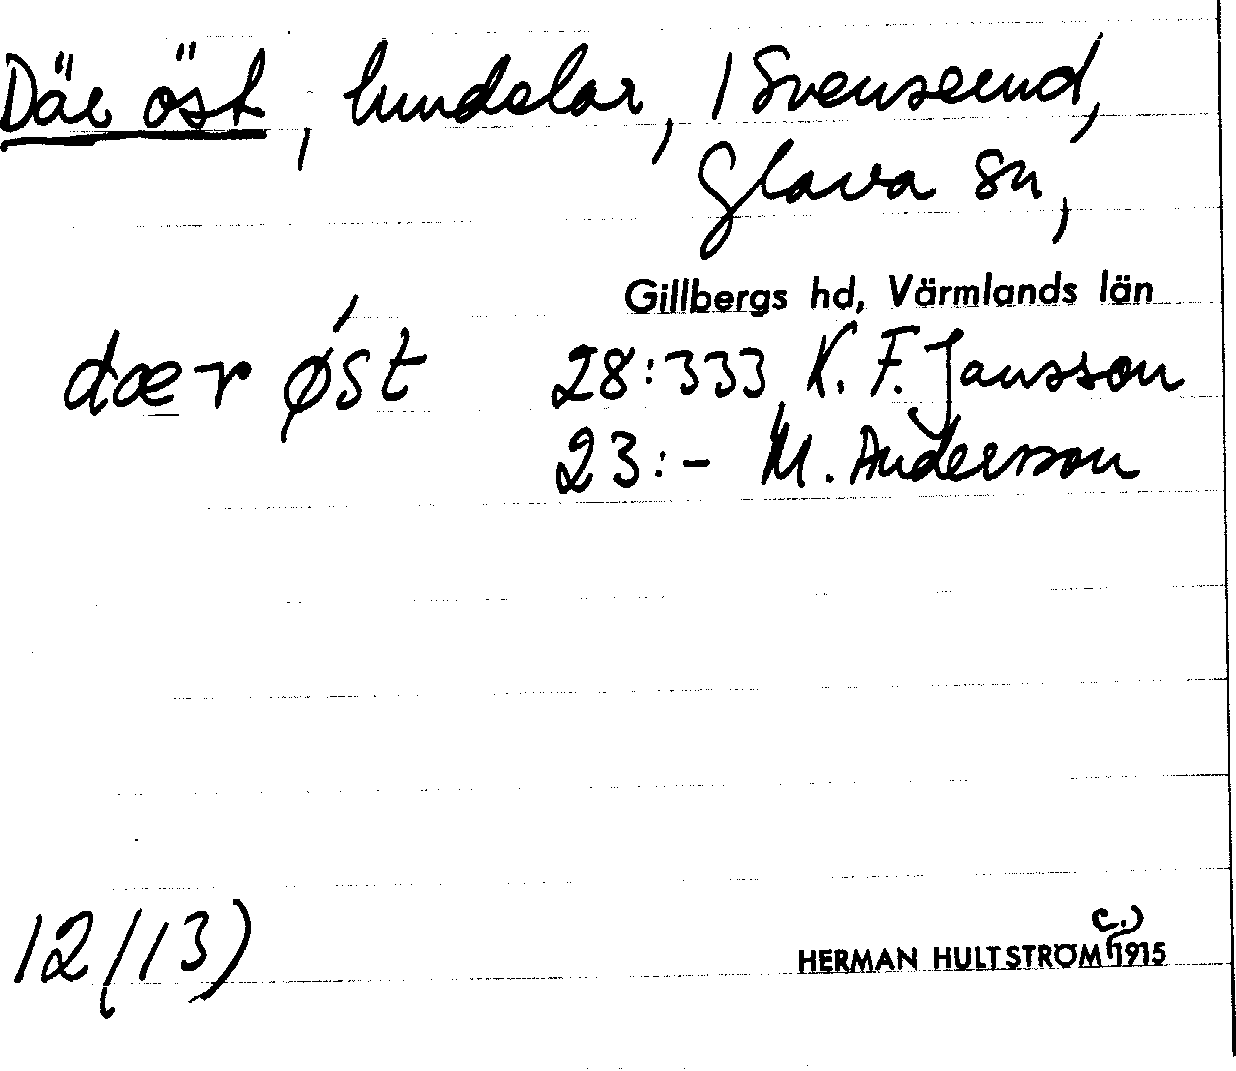 Där öst, hundelar, 1 Svenserud,
Glava sn,
Gillbergs hd, Värmlands län
dær øst 28:333 K. F. Jansson
23:- M. Andersson
12 (13) HERMAN HULTSTRÖM (c.) 1915